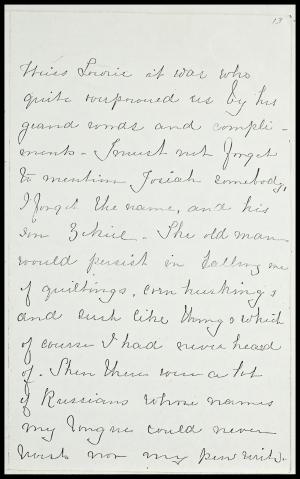 13
Miss Lowrie it was who
quite overpowered us by his
grand words and compli-
ments - I must not forget
to mention Josiah somebody,
I forget the name, and his
son Zekiel. The old man
would persist in telling me
of quiltings, corn huskings
and such like things which
of course I had never heard
of. Then there were a lot
of Russians whose names
my tongue could never
twist nor my pen write.